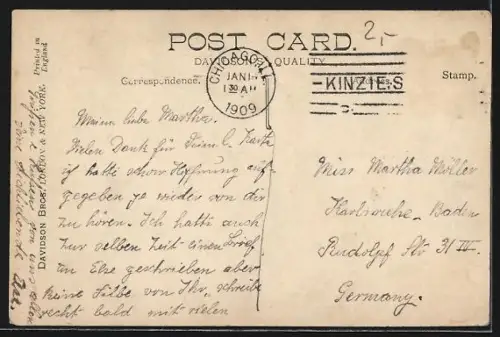 2,-
POST CARD.
DAVIDSON'S QUALITY.
Correspondence.
Stamp.
CHICAGO, ILL
JAN 1
1 30 AM
1909
KINZIE-S
Printed in
England
DAVIDSON BROS. LONDON & NEW YORK.
Meine liebe Martha.
Vielen Dank für Deine l. Karte
ich hatte schon Hoffnung auf-
gegeben je wieder von dir
zu hören. Ich hatte auch
zur selben Zeit einen Brief
an Else geschrieben aber
keine Silbe von Ihr, schreibe
recht bald mit vielen
Grüßen & Küssen von uns allen
Miss Martha Möller
Karlsruhe - Baden
Rudolf Str 31 III.
Germany.